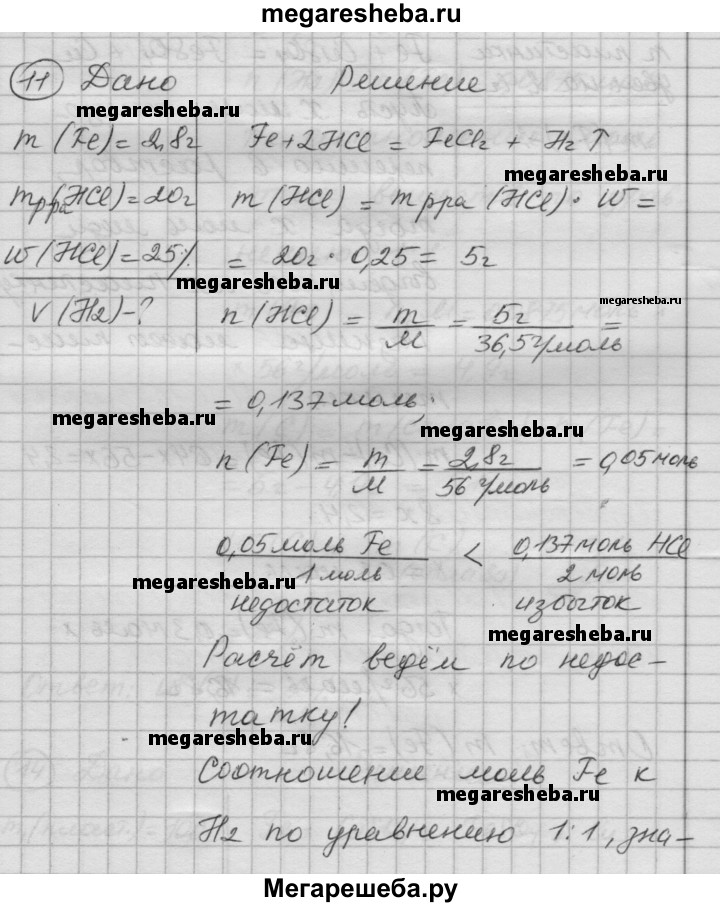 megaresheba.ru
11 Дано Решение
megaresheba.ru
m (Fe) = 2,8г Fe + 2HCl = FeCl₂ + H₂ ↑
megaresheba.ru
m р-ра (HCl) = 20г m (HCl) = m р-ра (HCl) · W =
W (HCl) = 25% = 20г · 0,25 = 5г
megaresheba.ru
V (H₂) - ? n (HCl) = m/M = 5г/36,5г/моль =
megaresheba.ru
= 0,137 моль;
megaresheba.ru
n (Fe) = m/M = 2,8г/56г/моль = 0,05 моль
0,05 моль Fe/1 моль < 0,137 моль HCl/2 моль
megaresheba.ru
недостаток избыток
megaresheba.ru
Расчёт ведём по недос-
татку!
megaresheba.ru
Соотношение моль Fe к
megaresheba.ru
H₂ по уравнению 1:1, зна-
megaresheba.ru
Мегарешеба.ру